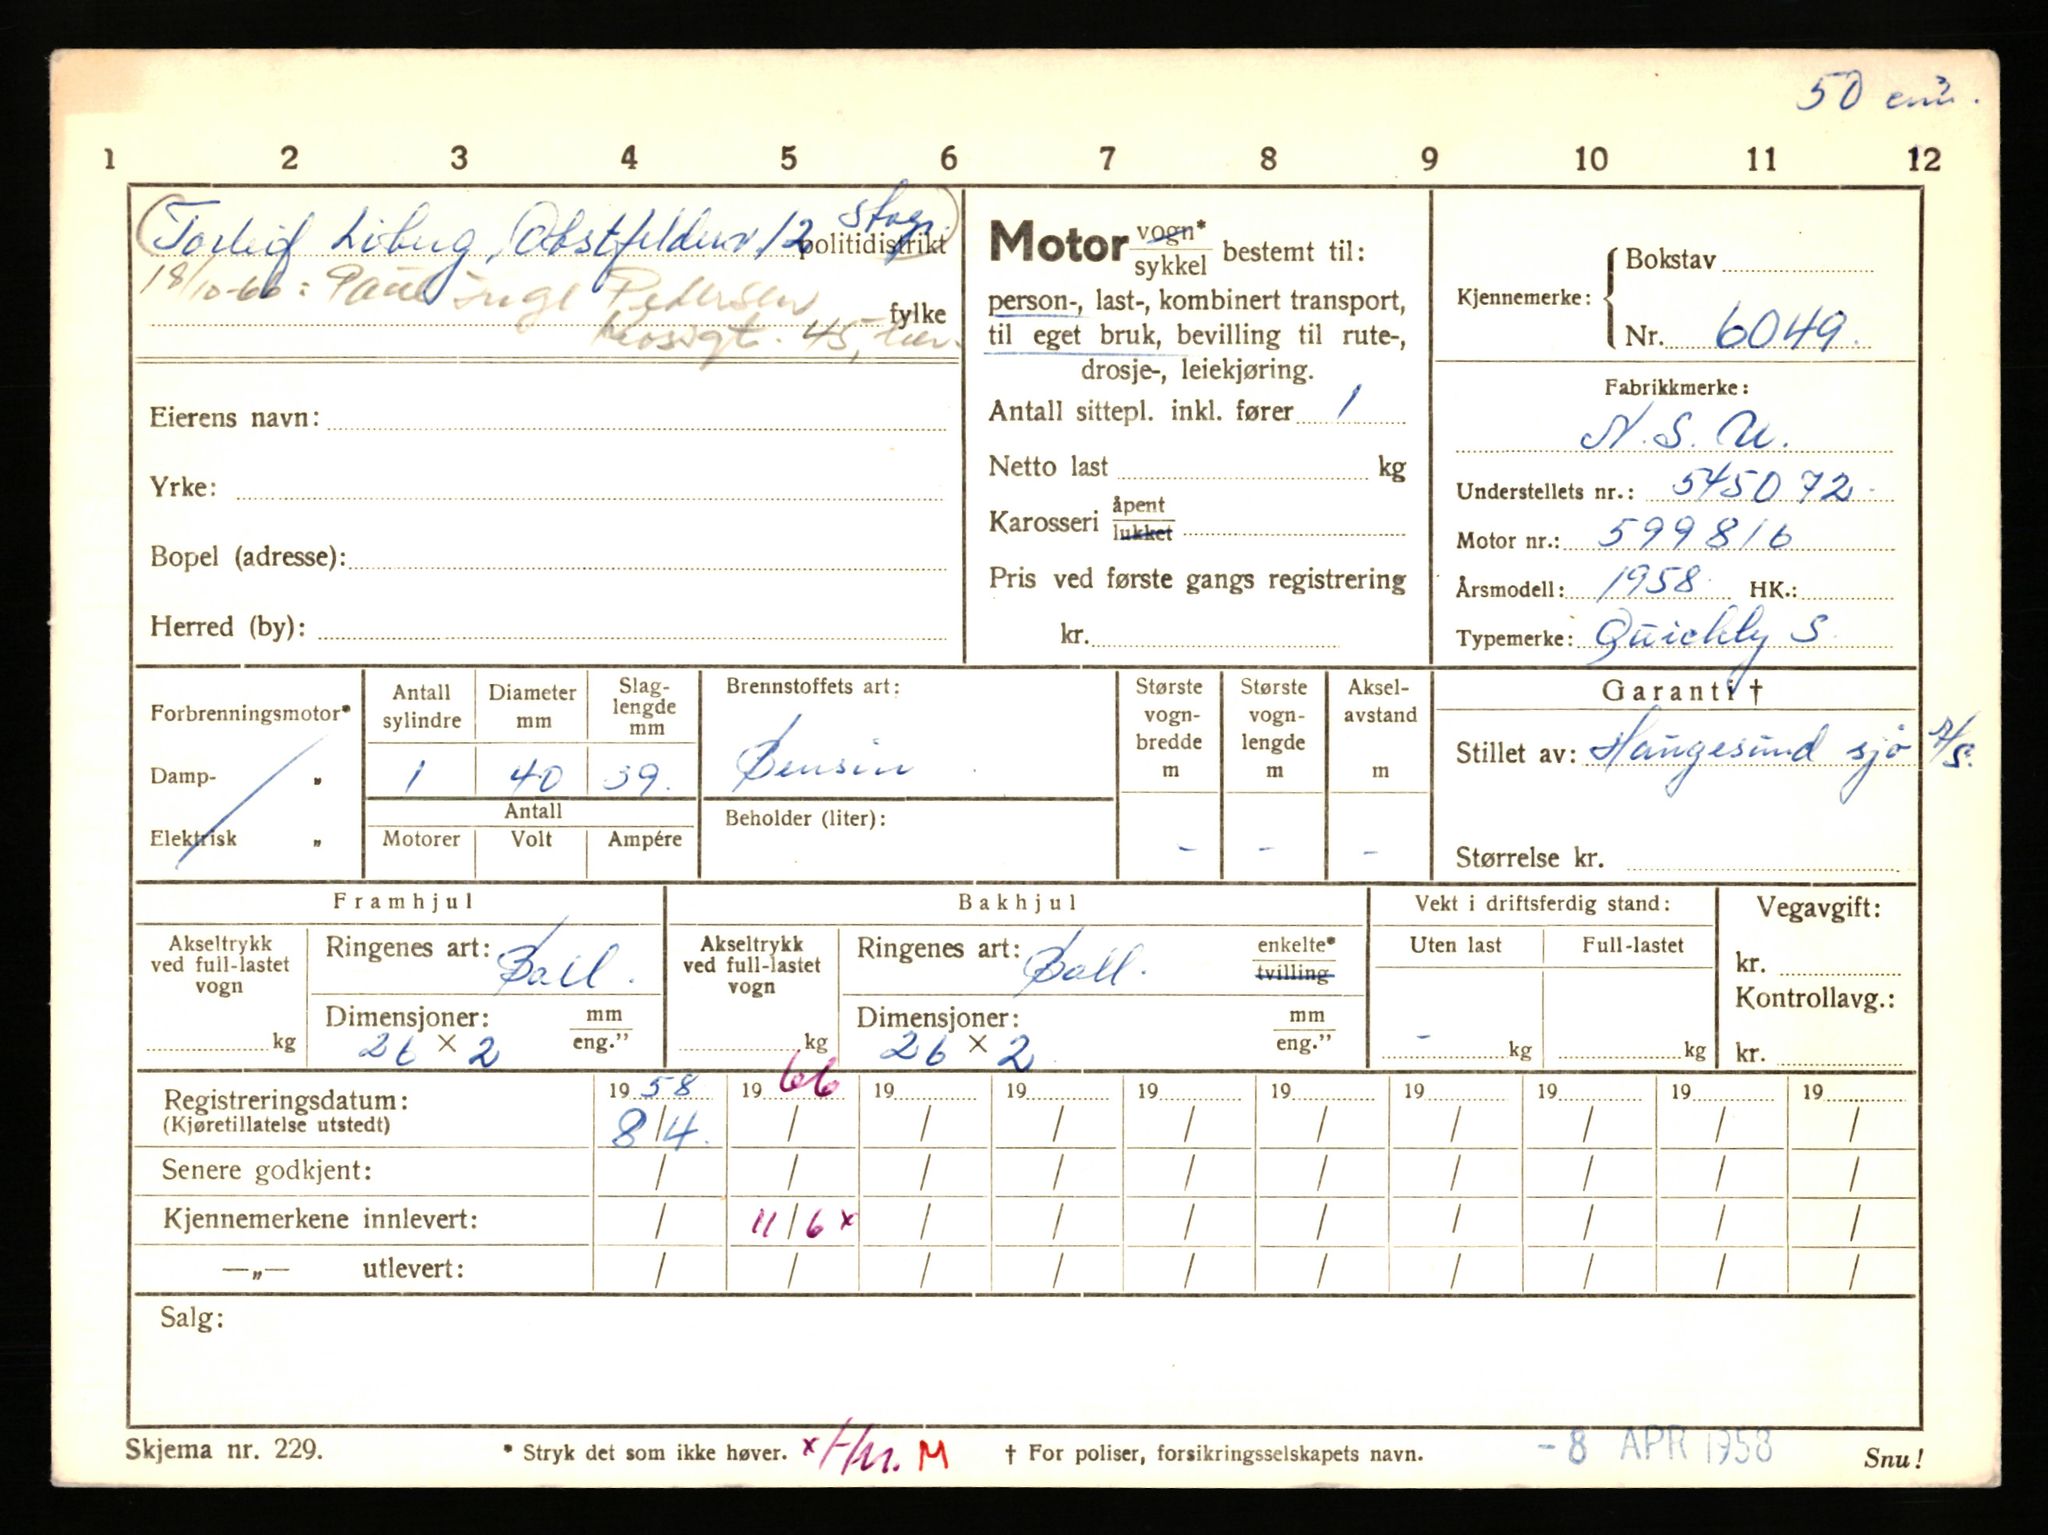 50 cm³.
1 2 3 4 5 6 7 8 9 10 11 12
Torleif Loberg, Obstfelders 12 Stvgr.
politidistrikt
18/10-66: Paul Inge Pedersen
fylke
45,
Eierens navn:
Yrke:
Bopel (adresse):
Herred (by):
Motor vogn* / sykkel bestemt til:
person-, last-, kombinert transport,
til eget bruk, bevilling til rute-,
drosje-, leiekjøring.
Antall sittepl. inkl. fører 1
Netto last kg
Karosseri åpent / lukket
Pris ved første gangs registrering
kr.
Kjennemerke: { Bokstav
Nr. 6049.
Fabrikkmerke:
N.S.U.
Understellets nr.: 545072.
Motor nr.: 599816
Årsmodell: 1958 HK.:
Typemerke: Quickly S.
Forbrenningsmotor*
Damp- „
Elektrisk „
Antall sylindre
1
Diameter mm
40
Slag-
lengde
mm
39.
Antall
Motorer Volt Ampére
Brennstoffets art:
Bensin
Beholder (liter):
Største
vogn-
bredde
m
-
Største
vogn-
lengde
m
-
Aksel-
avstand
m
-
Garanti †
Stillet av: Haugesund sjø A/S.
Størrelse kr.
Framhjul
Akseltrykk
ved full-lastet
vogn
kg
Ringenes art: Ball.
Dimensjoner: mm / eng."
26 × 2
Bakhjul
Akseltrykk
ved full-lastet
vogn
kg
Ringenes art: Ball. enkelte* / tvilling
Dimensjoner: mm / eng."
26 × 2
Vekt i driftsferdig stand:
Uten last Full-lastet
- kg kg
Vegavgift:
kr.
Kontrollavg.:
kr.
Registreringsdatum: 19 58 19 66 19 19 19 19 19 19 19 19
(Kjøretillatelse utstedt) 8/4. / / / / / / / / /
Senere godkjent: / / / / / / / / / /
Kjennemerkene innlevert: / 11/6 x / / / / / / / /
—„— utlevert: / / / / / / / / / /
Salg:
Skjema nr. 229.
* Stryk det som ikke høver.
M
† For poliser, forsikringsselskapets navn.
-8 APR 1958
Snu!